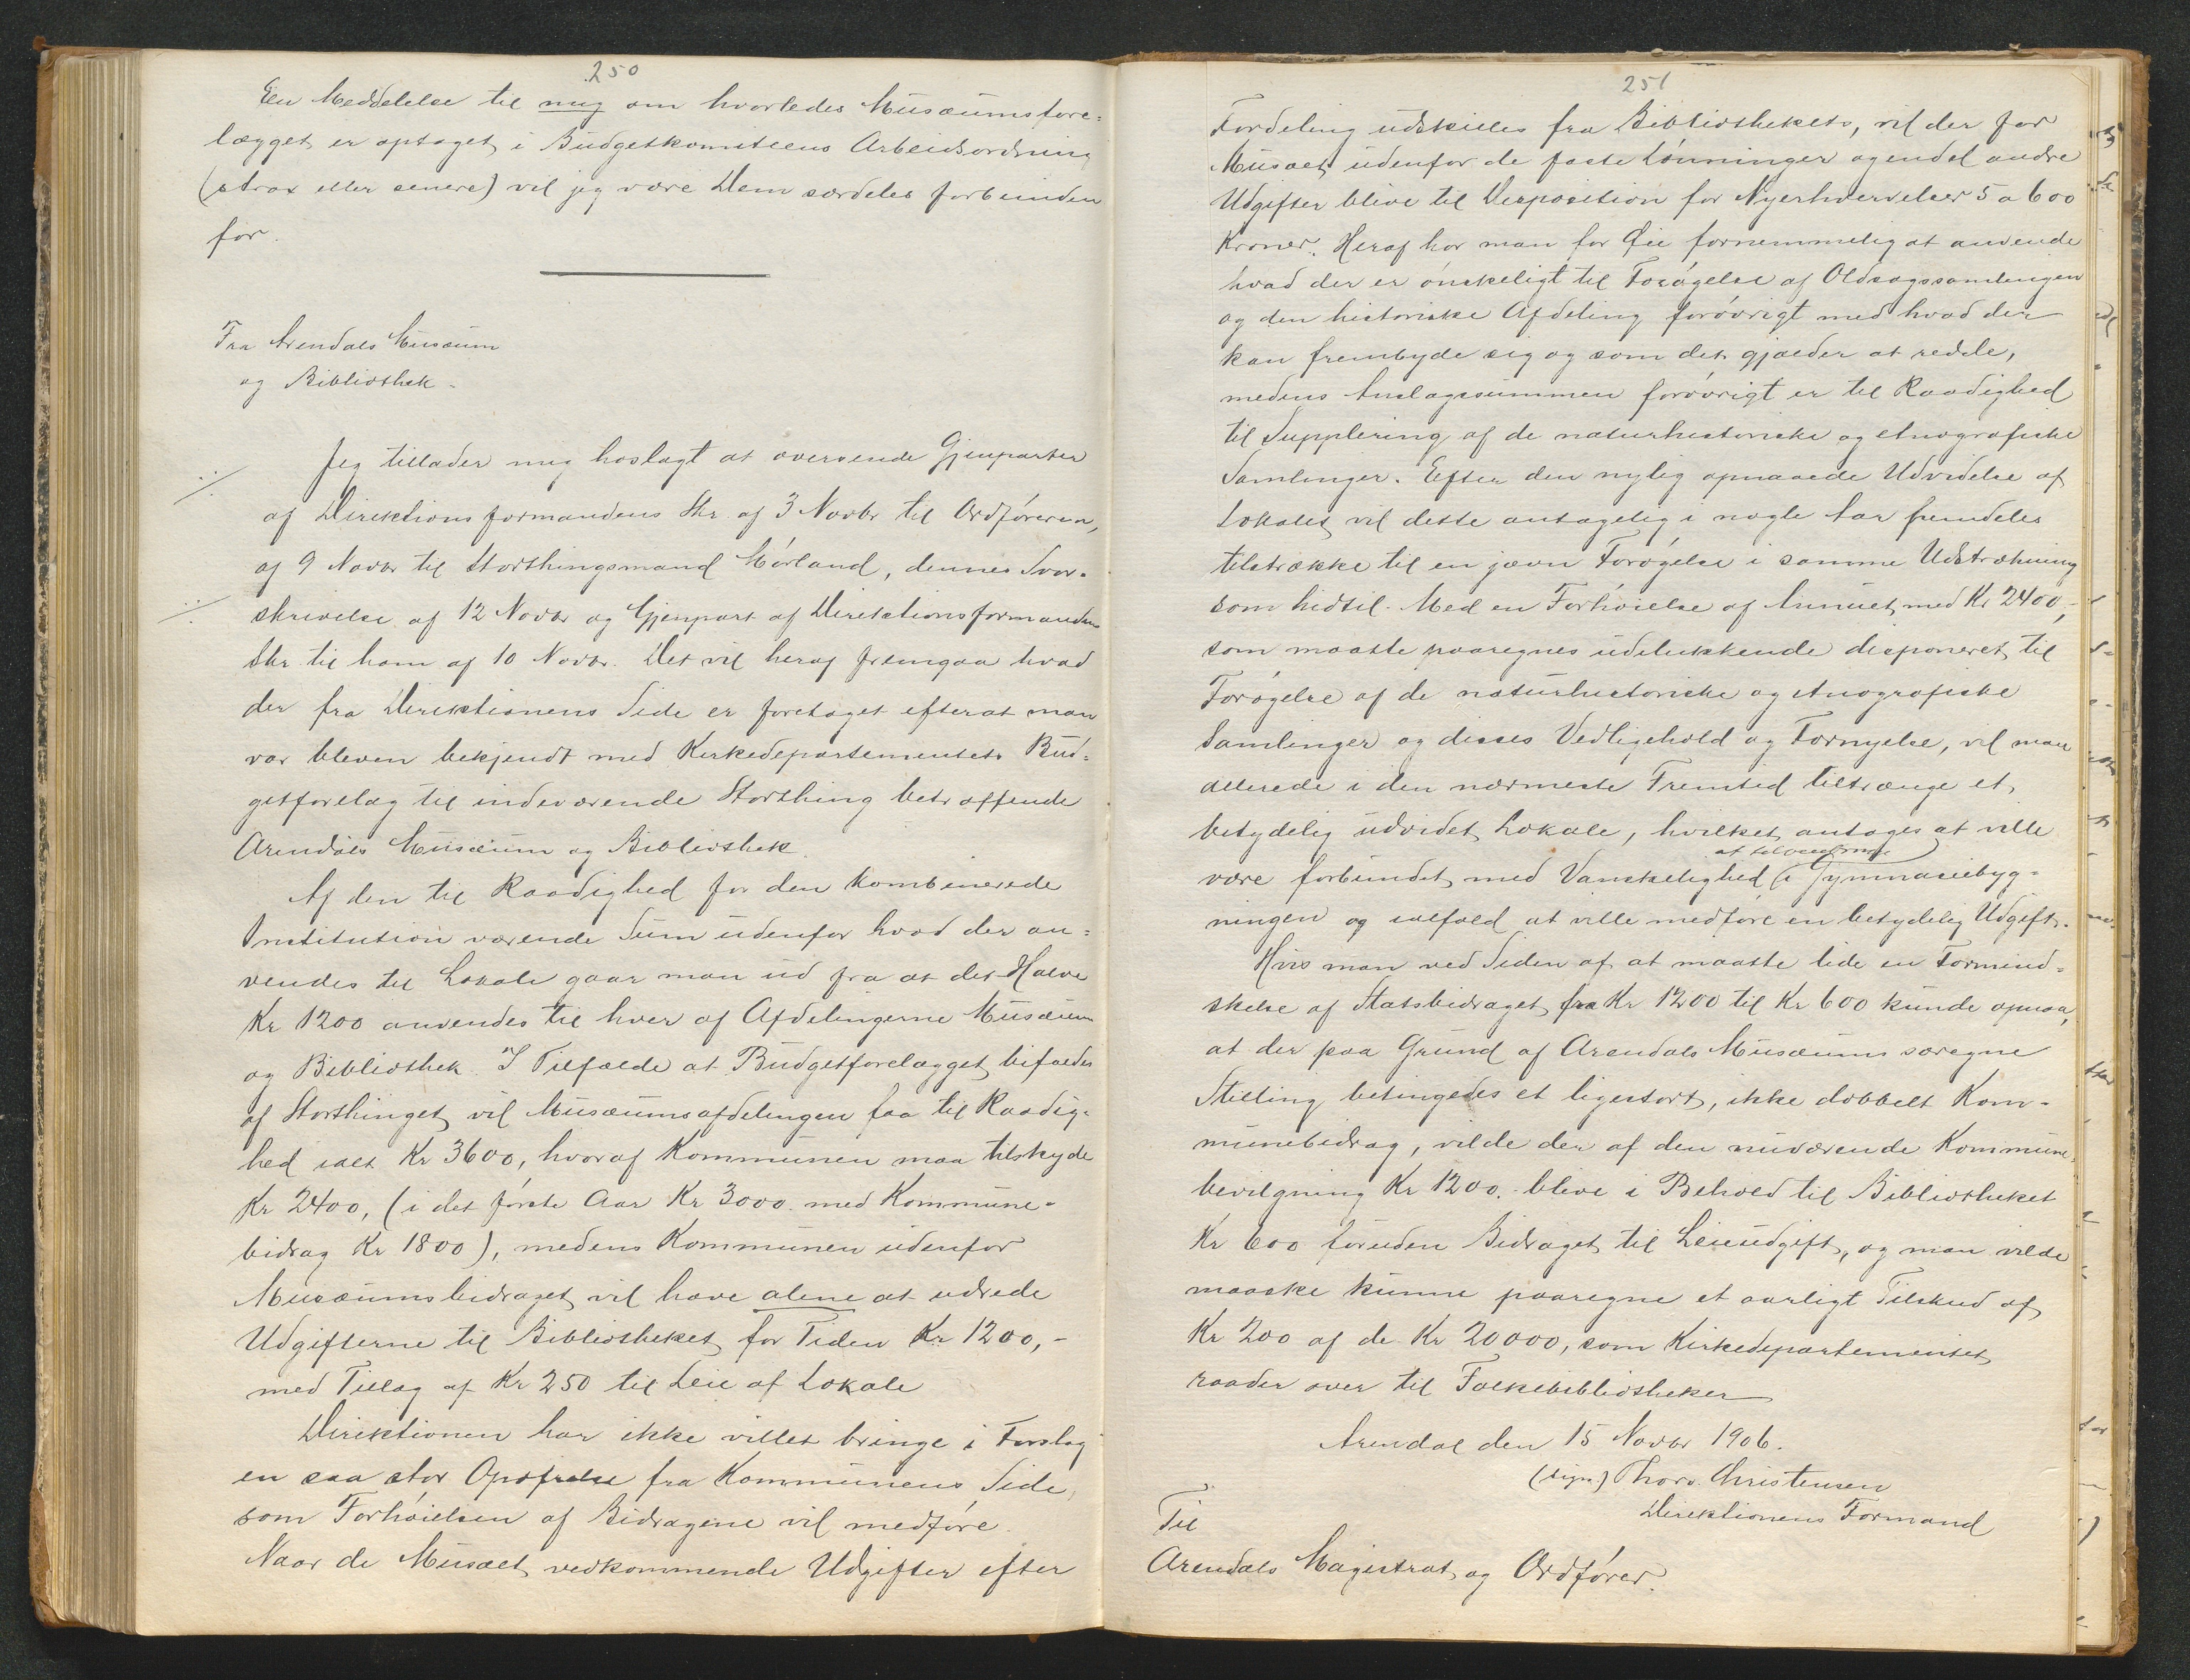 250
En Meddelelse til mig om hvorledes Musæumsfore=
lægget er optaget i Budgetkomiteens Arbeidsordning
(strax eller senere) vil jeg være Dem særdeles forbunden
for.
Fra Arendals Musæum
og Bibliothek.
Jeg tillader mig hoslagt at oversende Gjenparter
af Direktionsformandens Skr. af 3 Novbr til Ordføreren,
af 9 Novbr til Storthingsmand Mørland, dennes Svar-
skrivelse af 12 Novbr og Gjenpart af Direktionsformandens
Skr. til ham af 10 Novbr. Det vil heraf fremgaa hvad
der fra Direktionens Side er foretaget efterat man
var bleven bekjendt med Kirkedepartementets Bud=
getforelæg til indeværende Storthing betræffende
Arendals Musæum og Bibliothek
Af den til Raadighed for den kombinerede
Institution værende Sum udenfor hvad der an=
vendes til Lokale gaar man ud fra at det Halve
Kr 1200 anvendes til hver af Afdelingerne Musæum
og Bibliothek. I Tilfælde at Budgetforelægget bifaldes
af Storthinget vil Musæumsafdelingen faa til Raadig-
hed ialt Kr 3600, hvoraf Kommunen maa tilskyde
Kr 2400, (i det første Aar Kr 3000. med Kommune-
bidrag Kr 1800), medens Kommunen udenfor
Musæumsbidraget vil have alene at udrede
Udgifterne til Bibliotheket for Tiden Kr 1200,-
med Tillæg af Kr 250 til Leie af Lokale
Direktionen har ikke villet bringe i Forslag
en saa stor Opofrelse fra Kommunens Side,
som Forhøielsen af Bidragene vil medføre.
Naar de Musæet vedkommende Udgifter efter
251
Fordeling udskilles fra Bibliothekets, vil der for
Musæet udenfor de faste Lønninger og endel andre
Udgifter blive til Disposition for Nyerhvervelser 5 a 600
Kroner. Heraf har man for Øie fornemmelig at anvende
hvad der er ønskeligt til Forøgelse af Oldsagssamlingen
og den historiske Afdeling forøvrigt med hvad der
kan frembyde sig og som det gjælder at redde,
medens Anslagssummen forøvrigt er til Raadighed
til Supplering af de naturhistoriske og etnografiske
Samlinger. Efter den nylig opnaaede Udvidelse af
Lokalet vil dette antagelig i nogle Aar fremdeles
tilstrække til en jævn Forøgelse i samme Udstrækning
som hidtil. Med en Forhøielse af Annuet med Kr 2400,-
som maatte paaregnes udelukkende disponeret til
Forøgelse af de naturhistoriske og etnografiske
Samlinger og disses Vedligehold og Fornyelse, vil man
allerede i den nærmeste Fremtid tiltrænge et
betydelig udvidet Lokale, hvilket antages at ville
være forbundet med Vanskelighed i Gymnasiebyg=
ningen og ialfald at ville medføre en betydelig Udgift.
Hvis man ved Siden af at maatte lide en Formind=
skelse af Statsbidraget fra Kr 1200 til Kr 600 kunde opnaa,
at der paa Grund af Arendals Musæums særegne
Stilling betingedes et ligestort, ikke dobbelt Kom-
munebidrag, vilde der af den nuværende Kommune-
bevilgning Kr 1200.- blive i Behold til Bibliotheket
Kr 600 foruden Bidraget til Leieudgift, og man vilde
maaske kunne paaregne et aarligt Tilskud af
Kr 200 af de Kr 20000, som Kirkedepartementet
raader over til Folkebibliotheker
Arendal den 15 Novbr 1906.
(sign.) Thorv. Christensen
Direktionens Formand
Til
Arendals Magistrat og Ordfører.